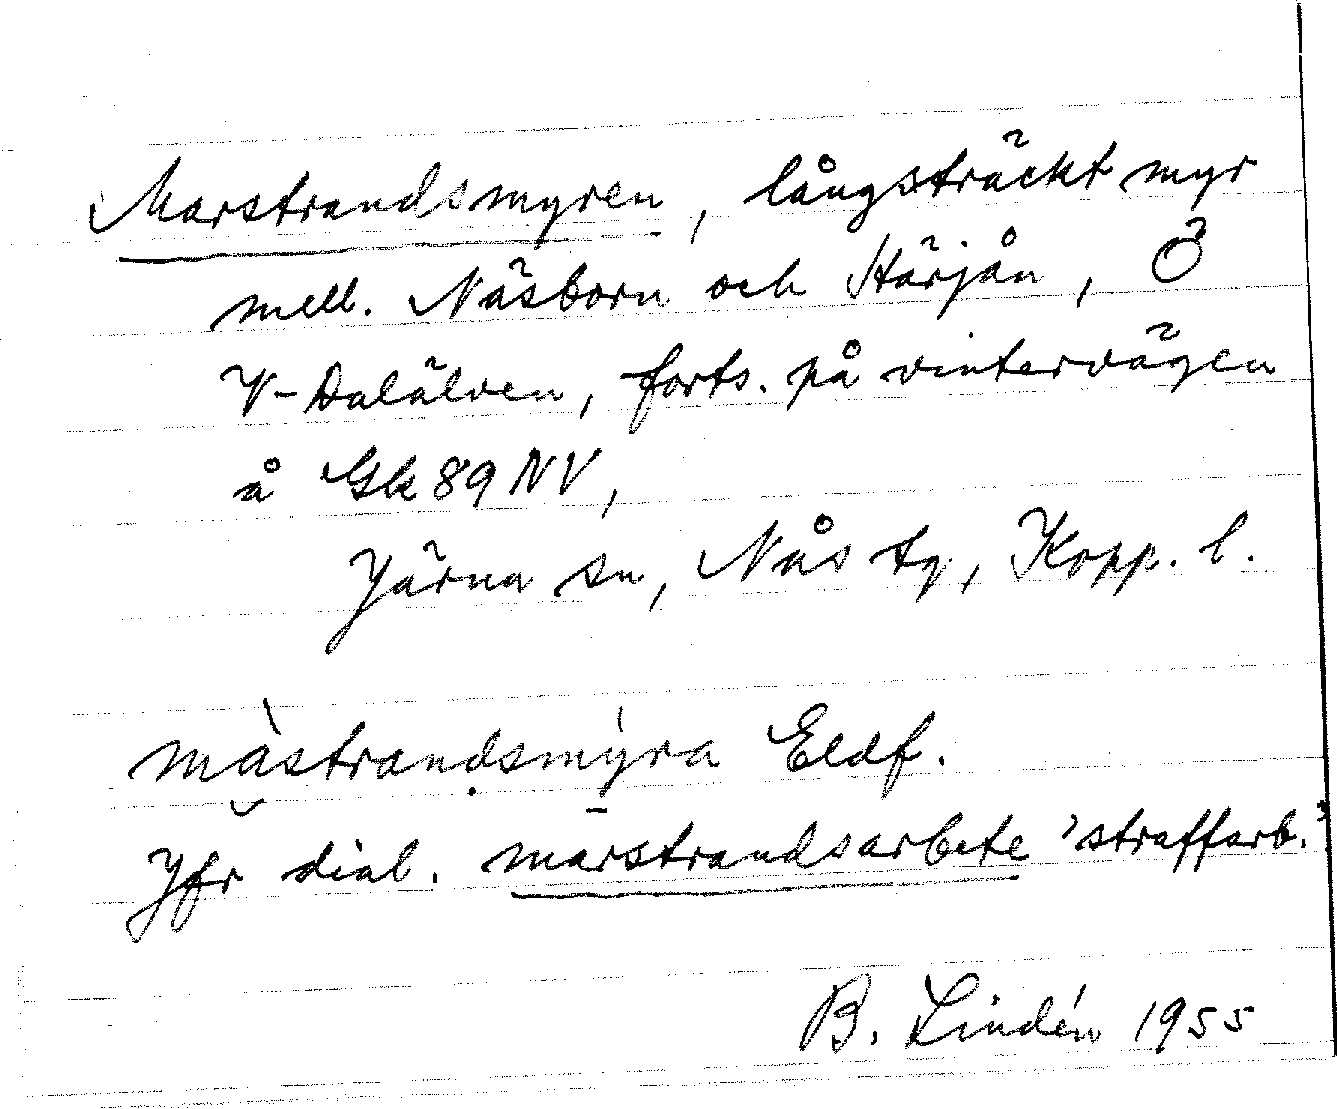 Marstrandsmyren, långsträckt myr
mell. Näsborn och Härjån, Ö
V-Dalälven, forts. på vintervägen
å Gk 89 NV,
Järna sn, Nås tg, Kopp. l.
mà̆stranḍsmý̖ra Eldf.
Jfr dial. mārstrandsarbete 'straffarb.'
B. Lindén 1955